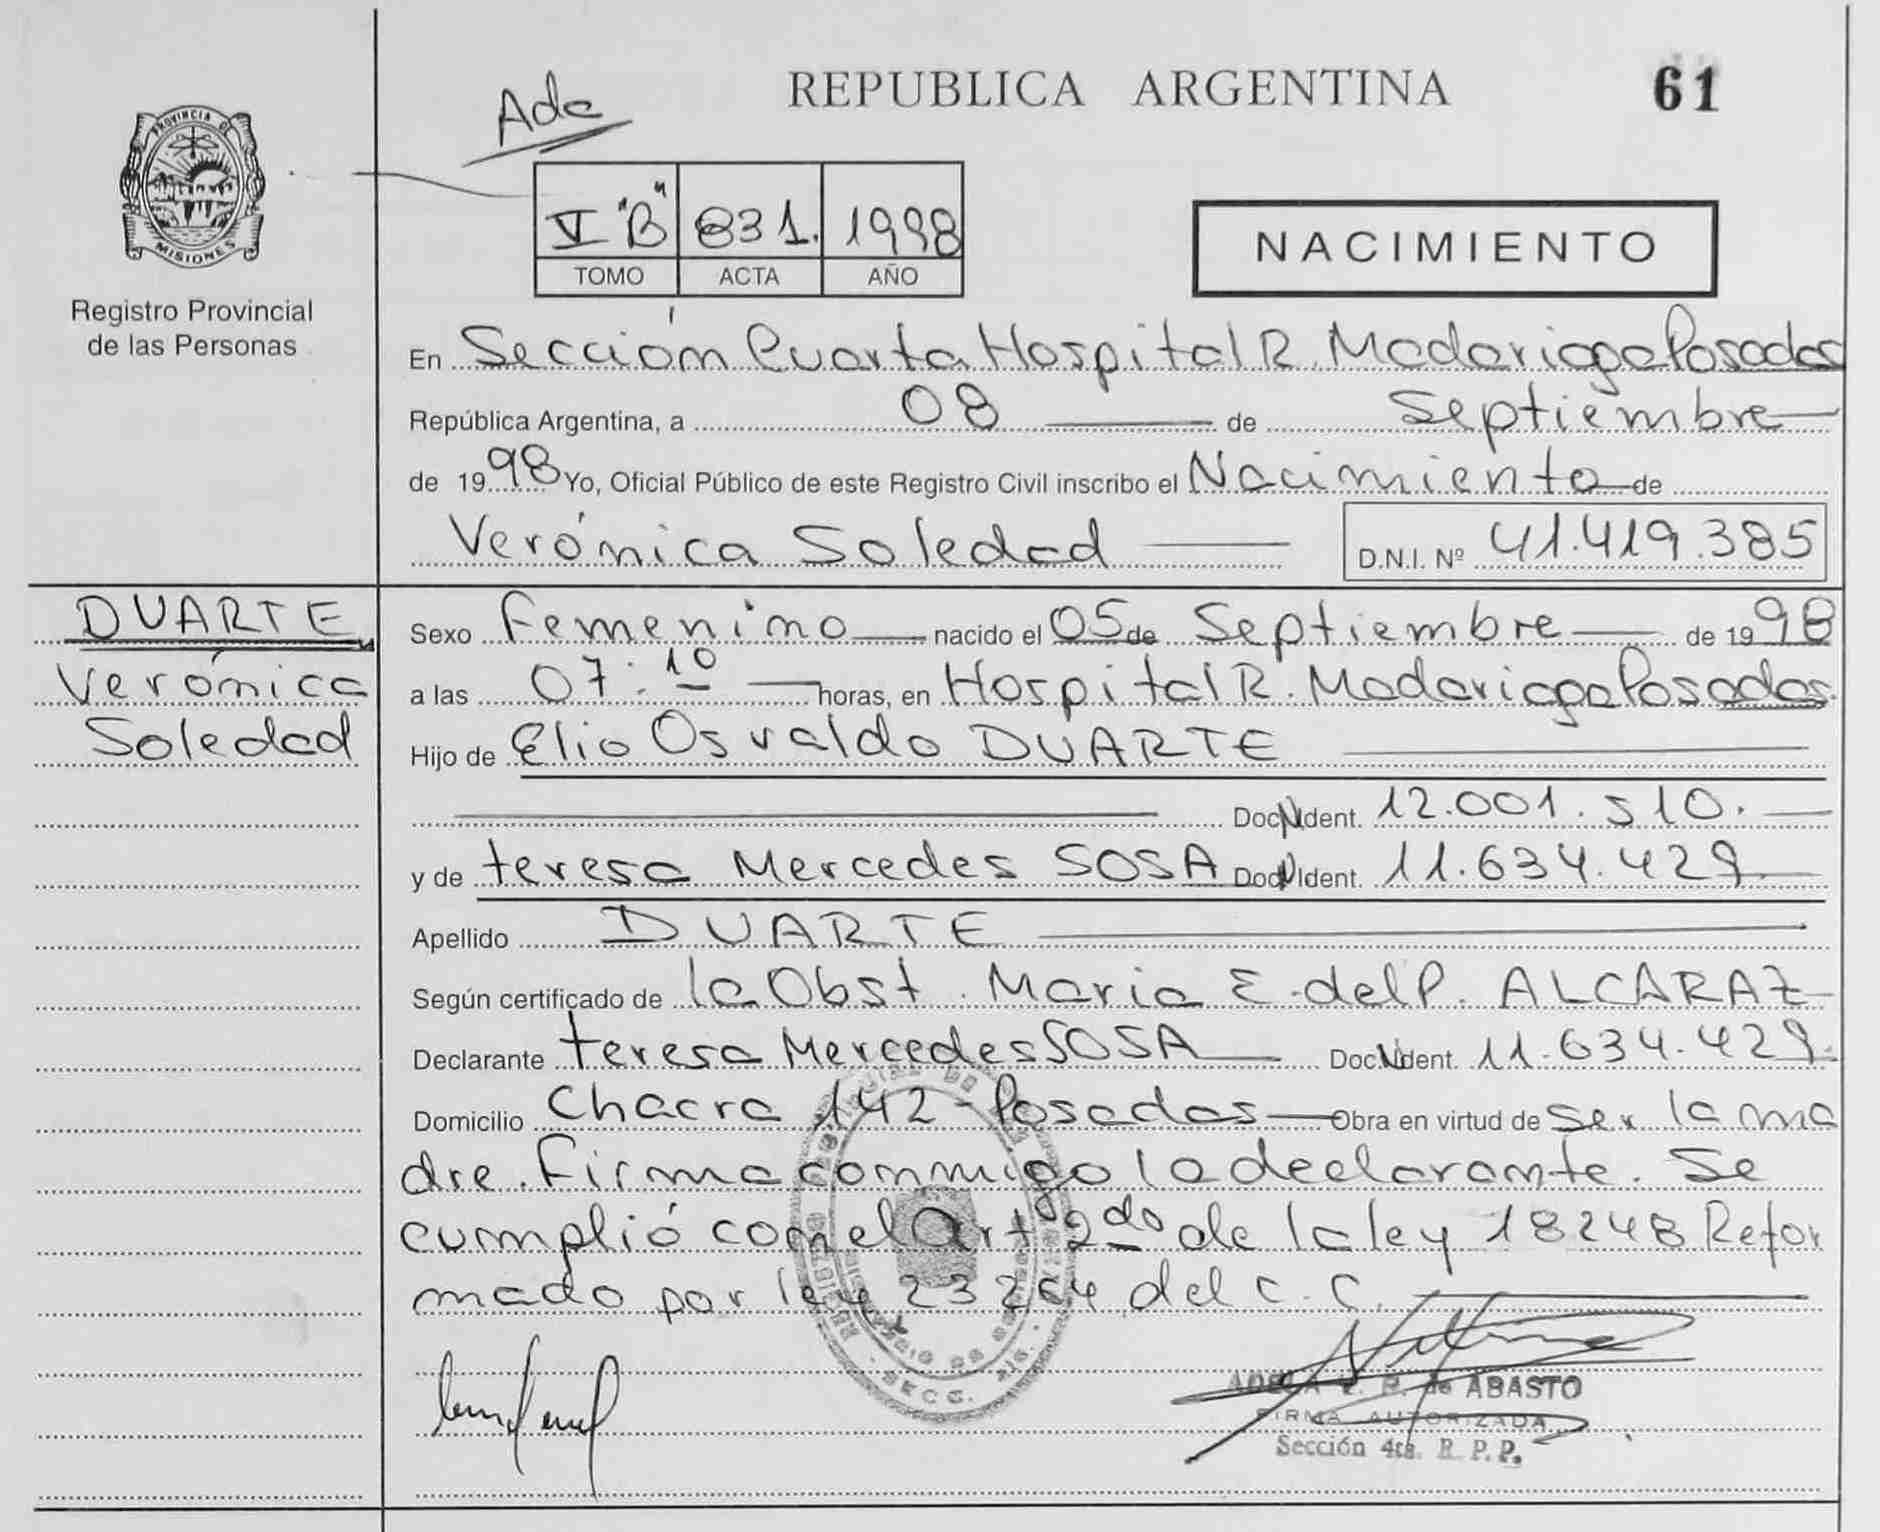 REPUBLICA ARGENTINA
61
Ade
PROVINCIA DE
MISIONES
Registro Provincial
de las Personas
V "B" 831. 1998
TOMO ACTA AÑO
NACIMIENTO
En Sección Cuarta Hospital R. Madariaga Posadas
República Argentina, a 08 de Septiembre
de 1998 Yo, Oficial Público de este Registro Civil inscribo el Nacimiento de
Verónica Soledad D.N.I. Nº 41.419.385
DUARTE
Verónica
Soledad
Sexo Femenino nacido el 05 de Septiembre de 1998
a las 07:10 horas, en Hospital R. Madariaga Posadas.
Hijo de Elio Osvaldo DUARTE
Doc. Ident. 12.001.510.
y de teresa Mercedes SOSA Doc. Ident. 11.634.429
Apellido DUARTE
Según certificado de la Obst. Maria E. del P. ALCARAZ
Declarante teresa Mercedes SOSA Doc. Ident. 11.634.429.
Domicilio Chacra 142 - Posadas Obra en virtud de ser la ma
dre. Firma conmigo la declarante. Se
cumplió con el Art 2do de la ley 18248 Refor
mado por ley 23264 del C. C.
SECC.
de ABASTO
FIRMA AUTORIZADA
Sección 4ta. R. P. P.